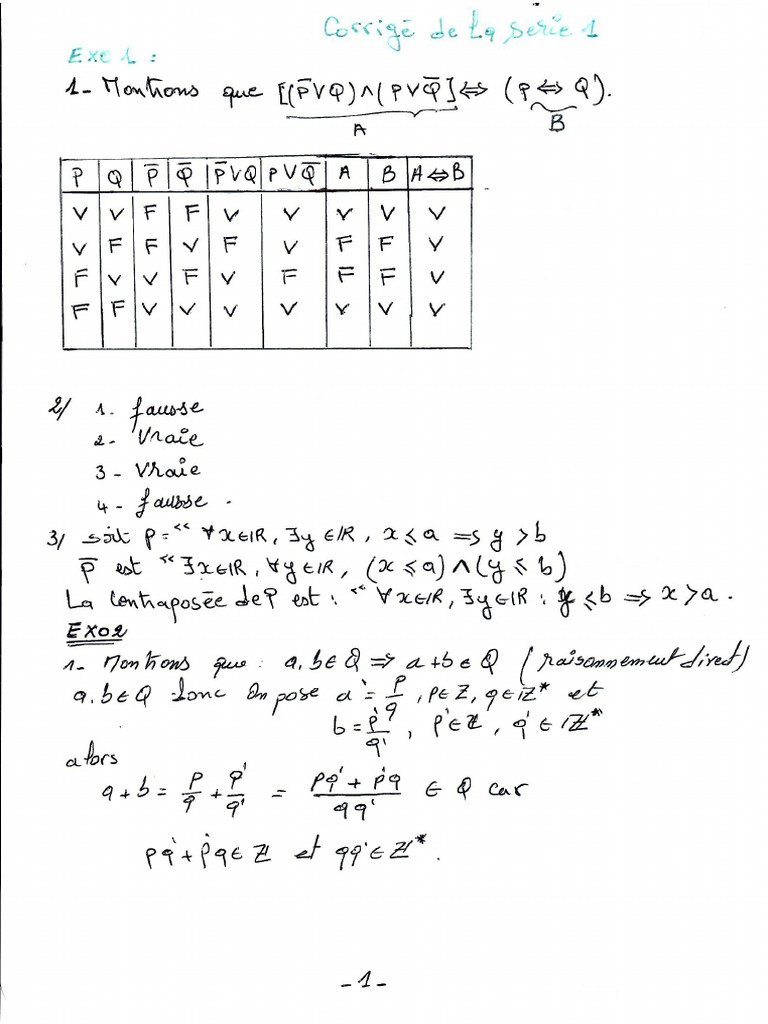 Corrigé de la serie 1
EXO 1 :
1- Montrons que [(P̅∨Q)∧(P∨Q̅)]⇔ (P⇔Q).
A B
P Q P̅ Q̅ P̅∨Q P∨Q̅ A B A⇔B
V V F F V V V V V
V F F V F V F F V
F V V F V F F F V
F F V V V V V V V
2/ 1. fausse
2- Vraie
3- Vraie
4- fausse .
3/ soit P = " ∀x∈IR, ∃y∈IR, x ≤ a ⇒ y > b
P̅ est " ∃x∈IR, ∀y∈IR, (x ≤ a) ∧ (y ≤ b)
La Contraposée de P est : " ∀x∈IR, ∃y∈IR : y ≤ b ⇒ x > a .
EXO2
1- Montrons que : a,b∈Q ⇒ a+b∈Q (raisonnement direct)
a,b∈Q donc on pose a = p/q , p∈Z, q∈Z* et
b = p'/q' , p'∈Z, q'∈Z*
alors
a+b = p/q + p'/q' = (pq' + p'q)/(qq') ∈ Q car
pq' + p'q ∈ Z et qq' ∈ Z* .
-1-